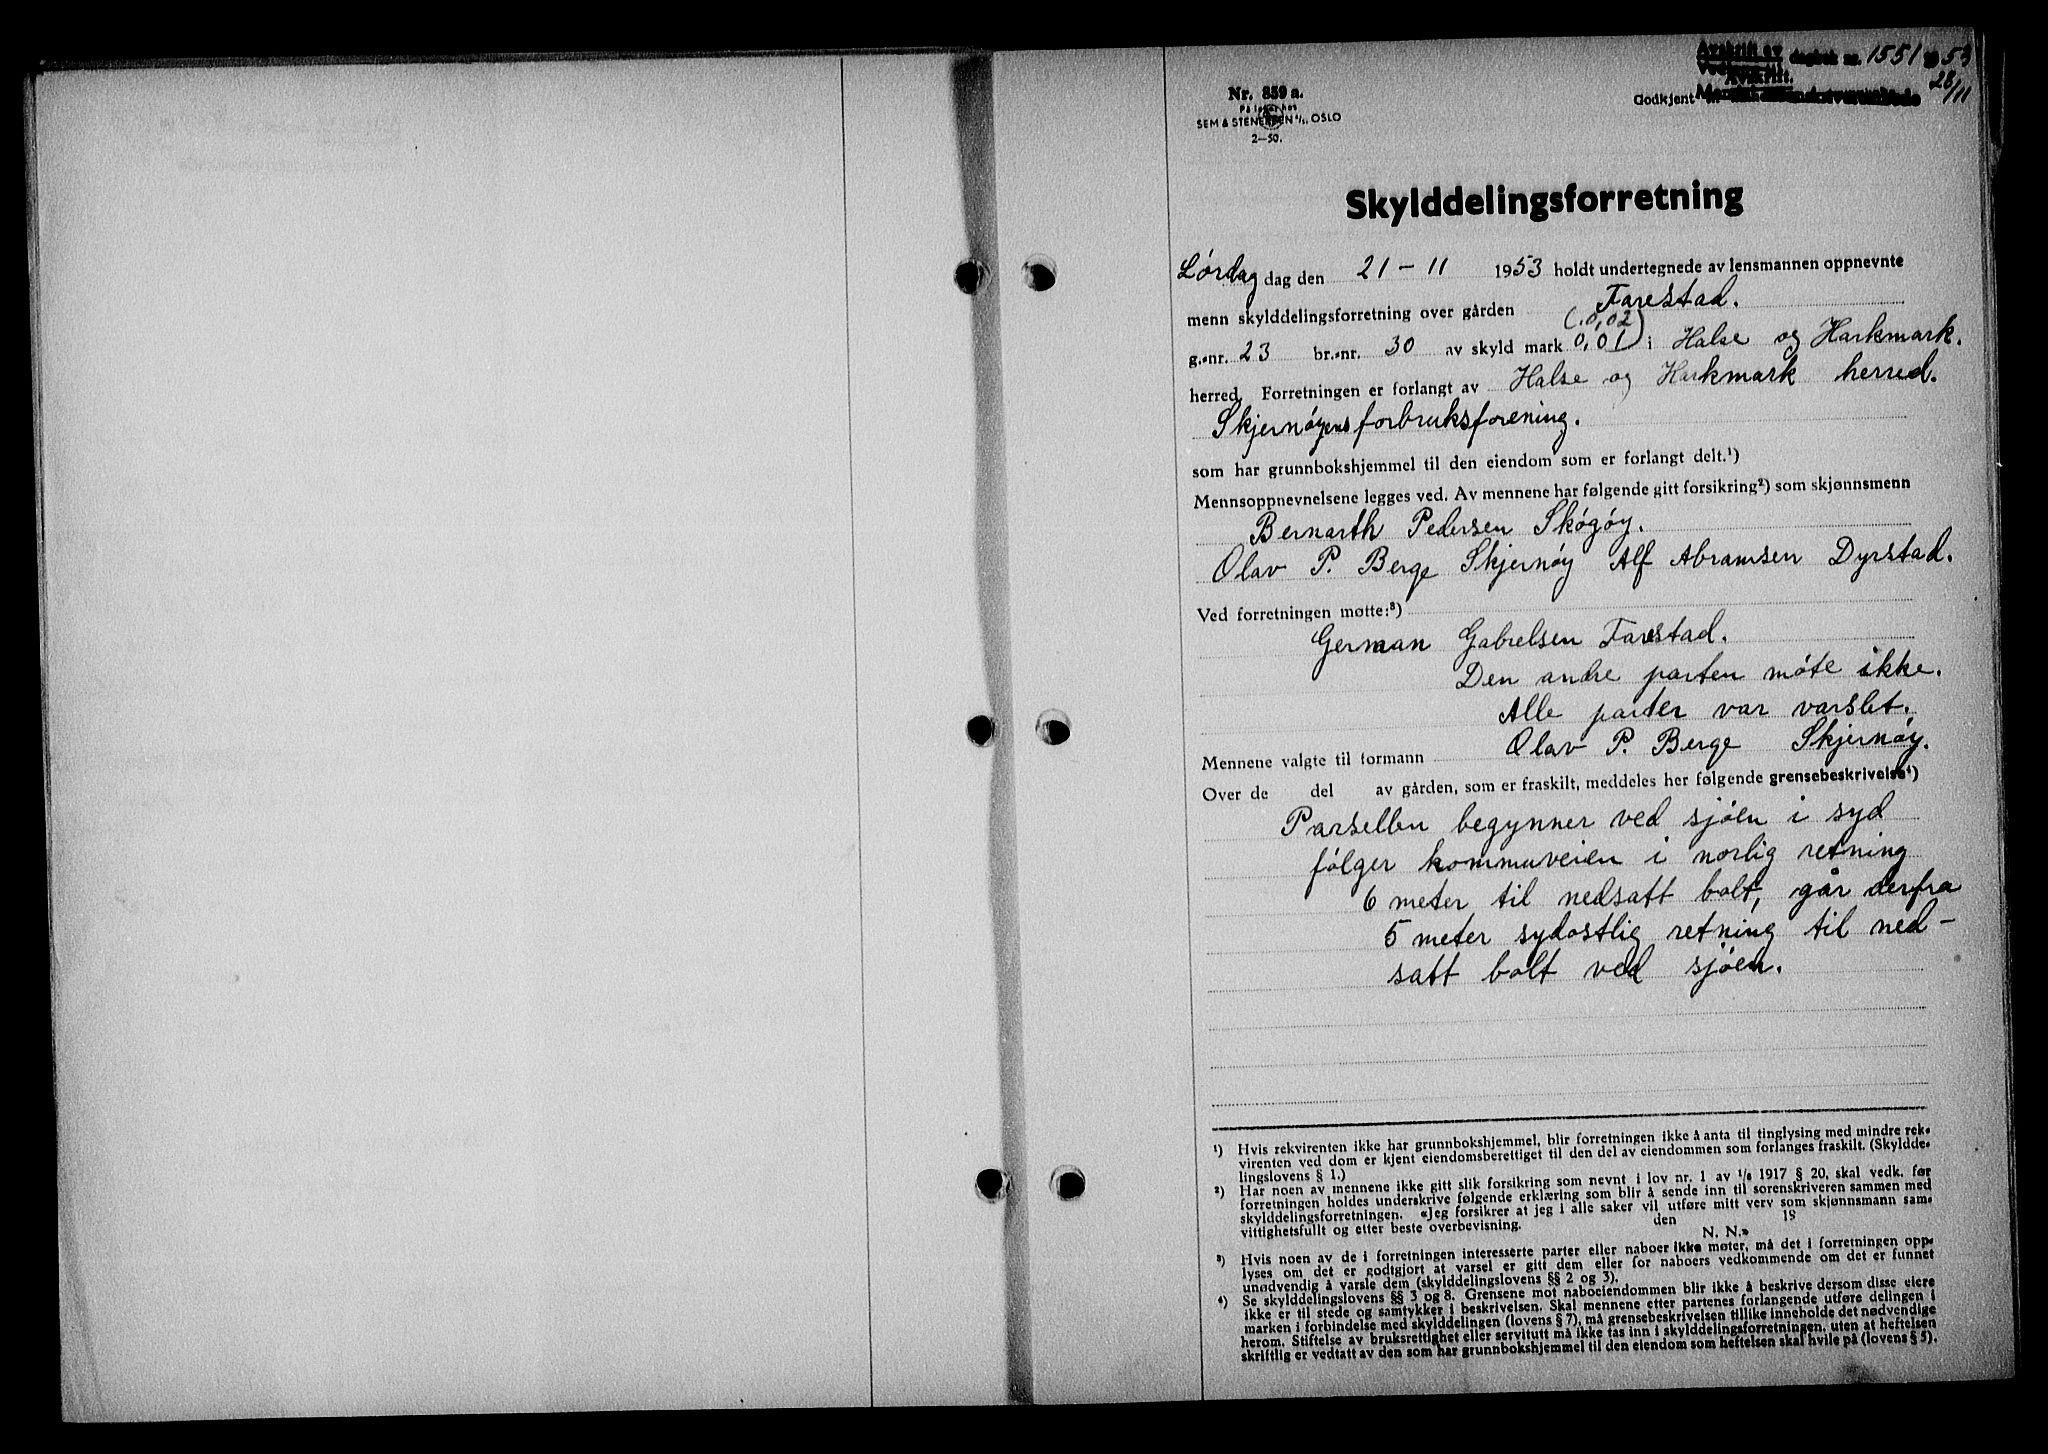 Avskrift av dagbok nr. 1551 1953
Avskrift. 28/11
Godkjent
Nr. 859 a.
På lager hos
SEM & STENERSEN A/S, OSLO
2—50.
Skylddelingsforretning
Lørdag dag den 21 – 11 1953 holdt undertegnede av lensmannen oppnevnte
menn skylddelingsforretning over gården Farestad.
(.0,02)
g.-nr. 23 br.-nr. 30 av skyld mark 0,01 i Halse og Harkmark.
herred. Forretningen er forlangt av Halse og Harkmark herred.
Skjernøyens forbruksforening.
som har grunnbokshjemmel til den eiendom som er forlangt delt.¹)
Mennsoppnevnelsene legges ved. Av mennene har følgende gitt forsikring²) som skjønnsmenn
Bernarth Pedersen Skogøy.
Olav P. Berge Skjernøy Alf Abramsen Dyrstad.
Ved forretningen møtte:³)
German Gabrelsen Farestad.
Den andre parten møte ikke.
Alle parter var varslet.
Mennene valgte til formann Olav P. Berge Skjernøy.
Over de del av gården, som er fraskilt, meddeles her følgende grensebeskrivelse⁴)
Parsellen begynner ved sjøen i syd
følger kommuveien i norlig retning
6 meter til nedsatt bolt, går derfra
5 meter sydostlig retning til ned-
satt bolt ved sjøen.
¹) Hvis rekvirenten ikke har grunnbokshjemmel, blir forretningen ikke å anta til tinglysing med mindre rek-
virenten ved dom er kjent eiendomsberettiget til den del av eiendommen som forlanges fraskilt. (Skyldde-
lingslovens § 1.)
²) Har noen av mennene ikke gitt slik forsikring som nevnt i lov nr. 1 av 1/6 1917 § 20, skal vedk. før
forretningen holdes underskrive følgende erklæring som blir å sende inn til sorenskriveren sammen med
skylddelingsforretningen. «Jeg forsikrer at jeg i alle saker vil utføre mitt verv som skjønnsmann sam-
vittighetsfullt og etter beste overbevisning. den 19
N. N.»
³) Hvis noen av de i forretningen interesserte parter eller naboer ikke møter, må det i forretningen opp-
lyses om det er godtgjort at varsel er gitt dem eller for naboers vedkommende om det er funnet
unødvendig å varsle dem (skylddelingslovens §§ 2 og 3).
⁴) Se skylddelingslovens §§ 3 og 8. Grensene mot naboeiendommen blir ikke å beskrive dersom disse eiere
ikke er til stede og samtykker i beskrivelsen. Skal mennene etter partenes forlangende utføre delingen i
marken i forbindelse med skylddelingen (lovens § 7), må grensebeskrivelsen tillike inneholde det nødvendige
herom. Stiftelse av bruksrettighet eller servitutt må ikke tas inn i skylddelingsforretningen, uten at heftelsen
skriftlig er vedtatt av den som har grunnbokshjemmel til den eiendom som heftelsen skal hvile på (lovens § 5).